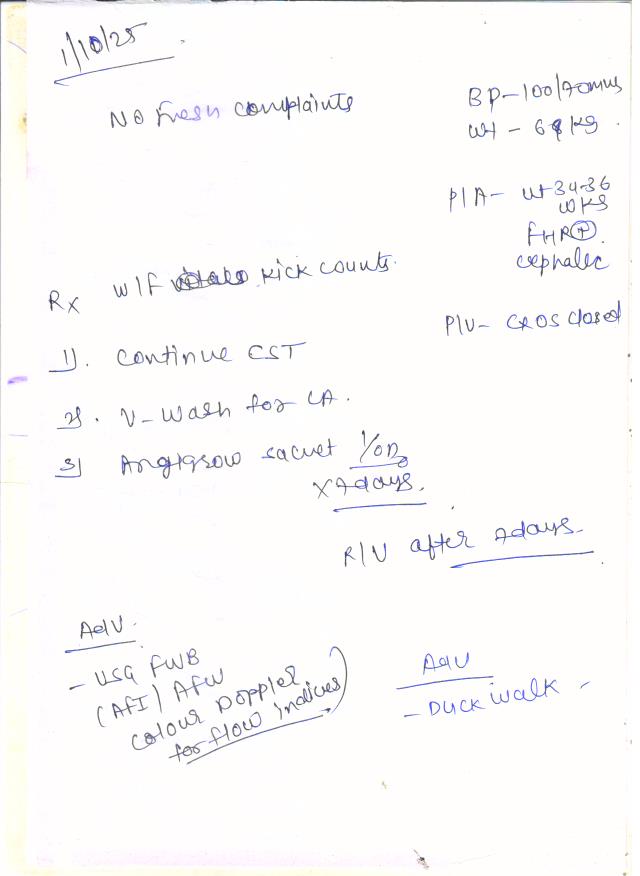 1/10/25
No fresh complaints
BP-100/70mm
Wt - 6 kg.
P/A- ut34-36
wks
FHR+
cephalic
W/F kick counts.
Rx
P/V- CX OS closed
1). Continue CST
2). V-wash for LA.
3) Argigrow sachet 1/OD
x 7days.
R/V after 7days.
Adv.
- USG FWB
(AFI) AFW
colour Doppler
for flow indices)
Adv
- Duck walk -